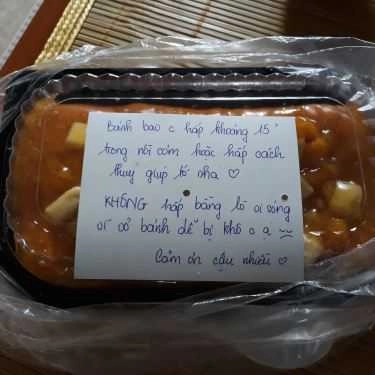 Bánh bao c hấp khoảng 15'
trong nồi cơm hoặc hấp cách
thuỷ giúp tớ nha ♡
KHÔNG hấp bằng lò vi sóng
vì vỏ bánh dễ bị khô ạ ạ
Cảm ơn cậu nhiều ♡